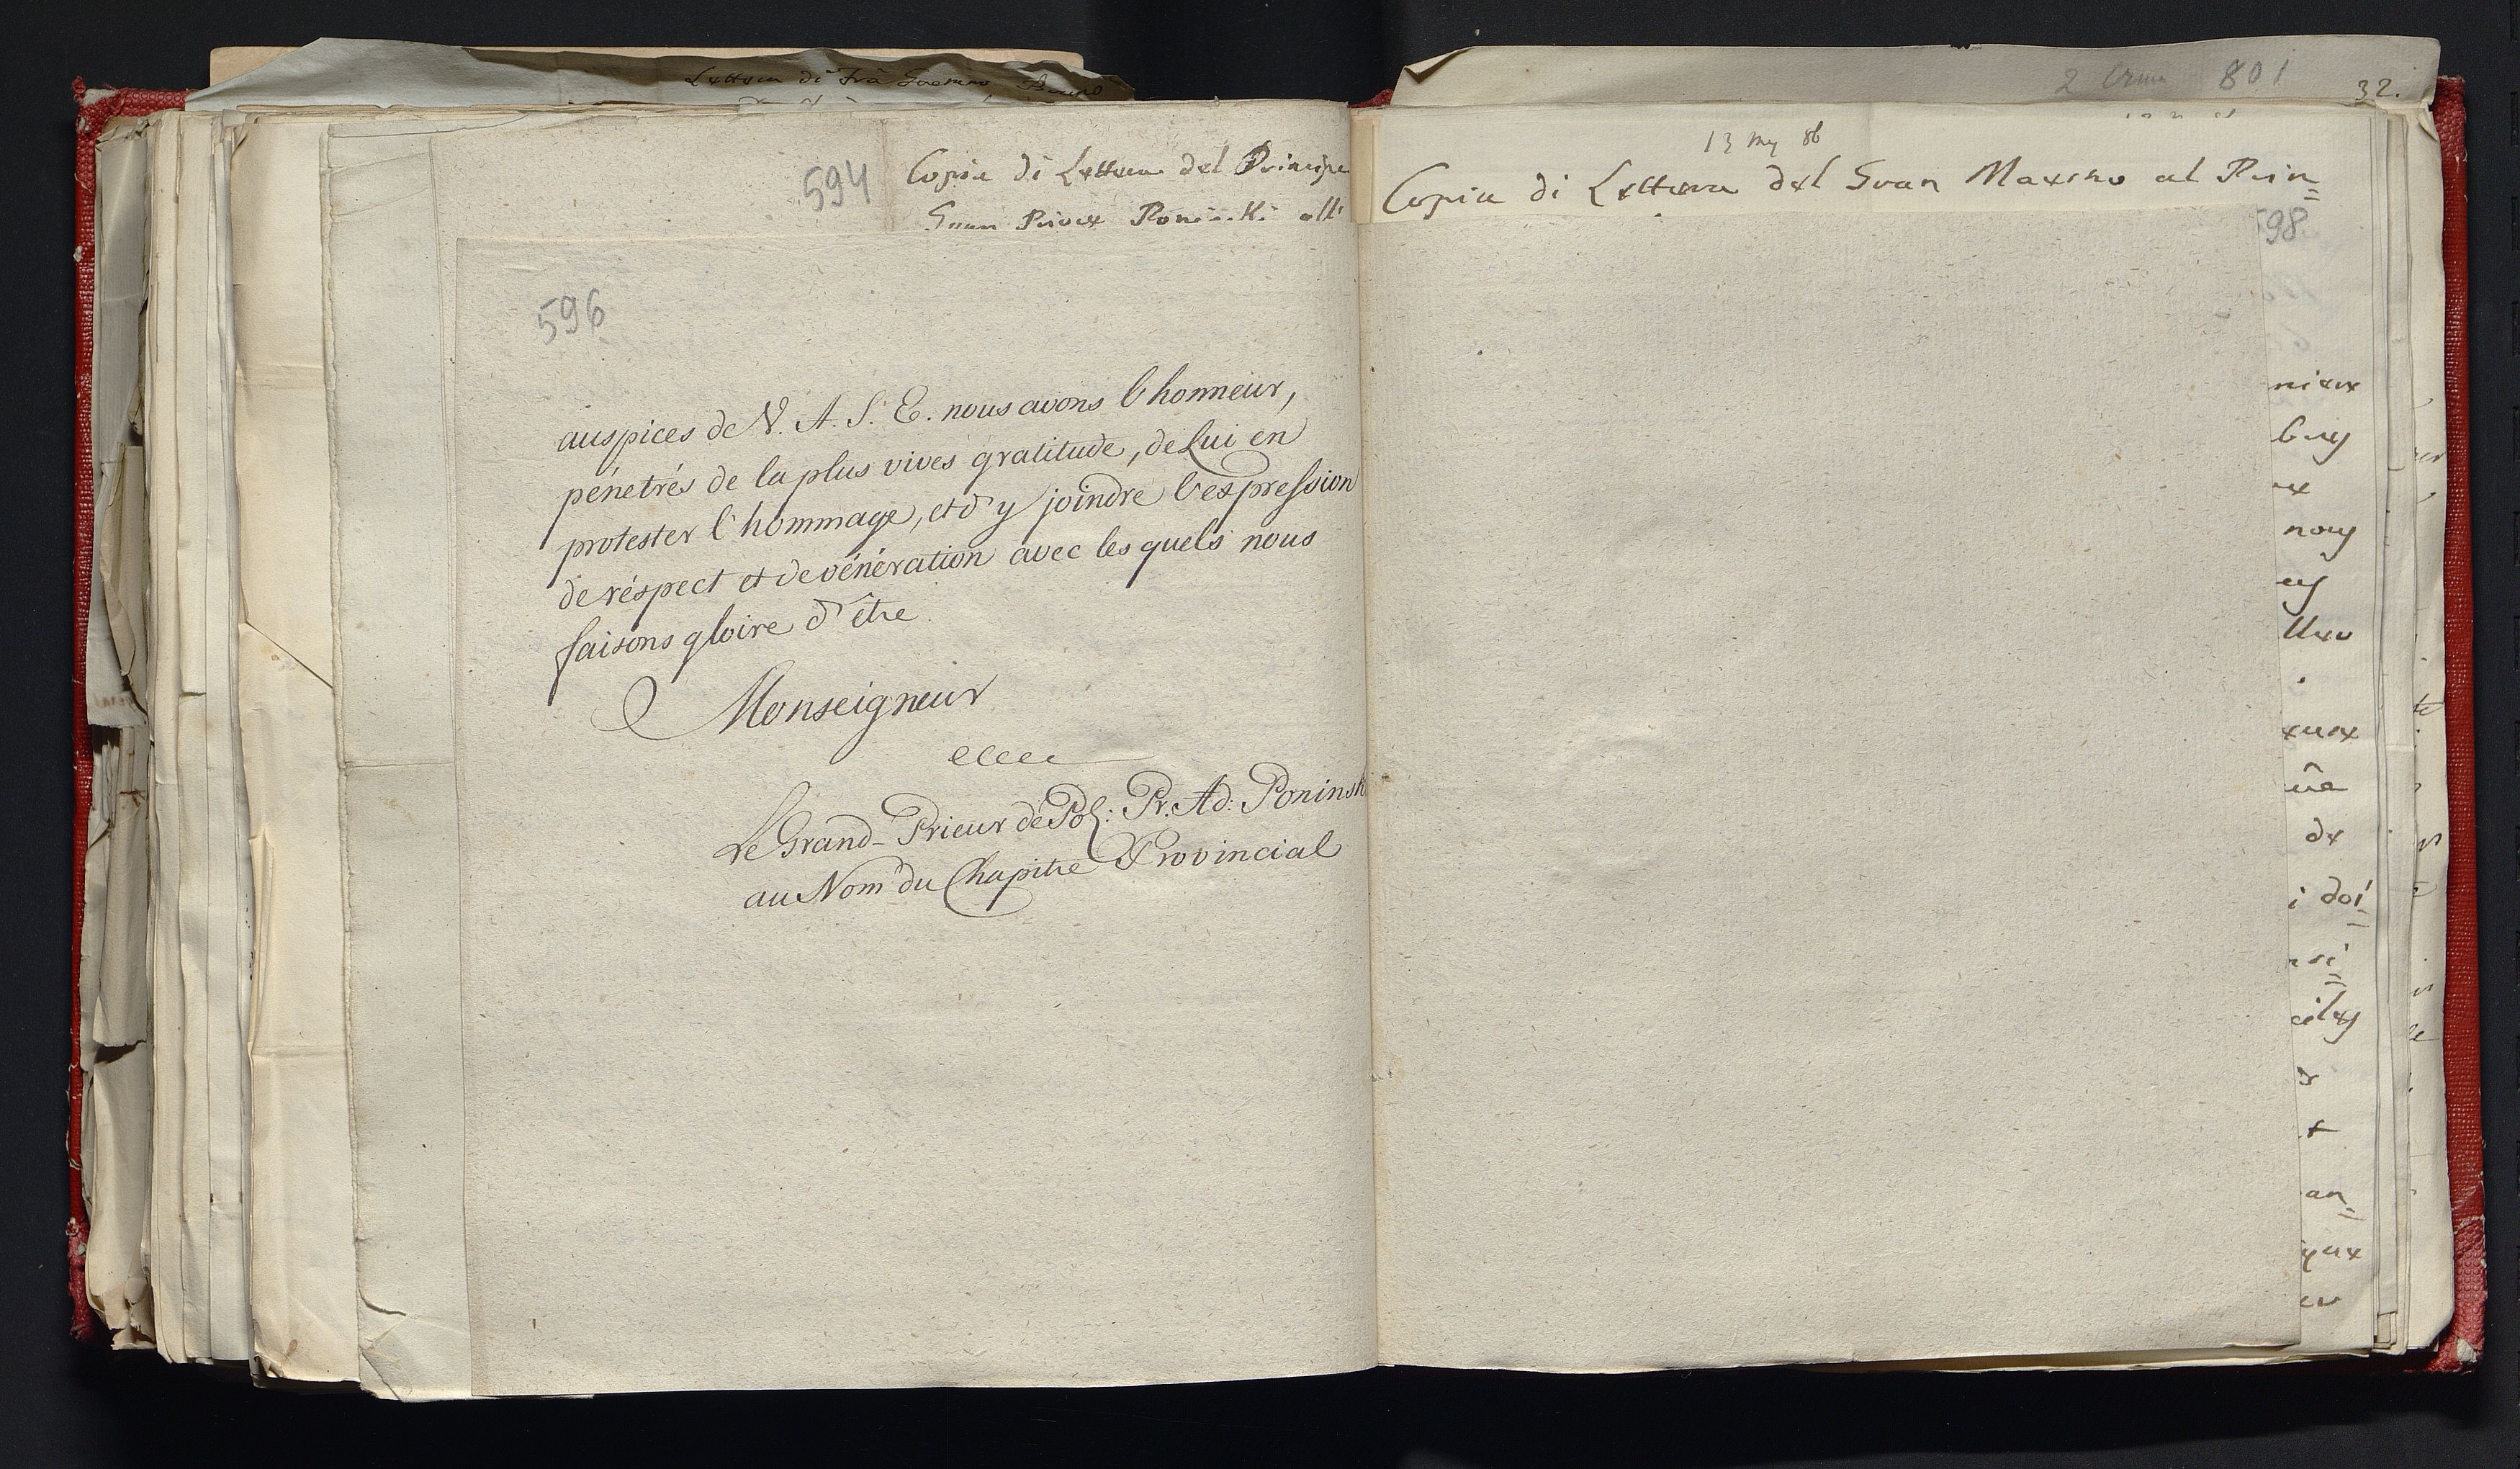 Lettera di Frà Gaetano
594
Copia di Lettera del Principe
Gran Prior Poninski all'
596
auspices de V. A. S. E. nous avons l'honneur,
pénetrés de la plus vives gratitude, de Lui en
protester l'hommage, et d'y joindre l'expression
de réspect et de vénération avec les quels nous
faisons gloire d'être
Monseigneur
Le Grand-Prieur de Pol: Pr. Ad: Poninsk
au Nom du Chapitre Provincial
801
32.
13 may 86
Copia di Lettera del Gran Maestro al Prin=
598
nous
de
i doi=
an=